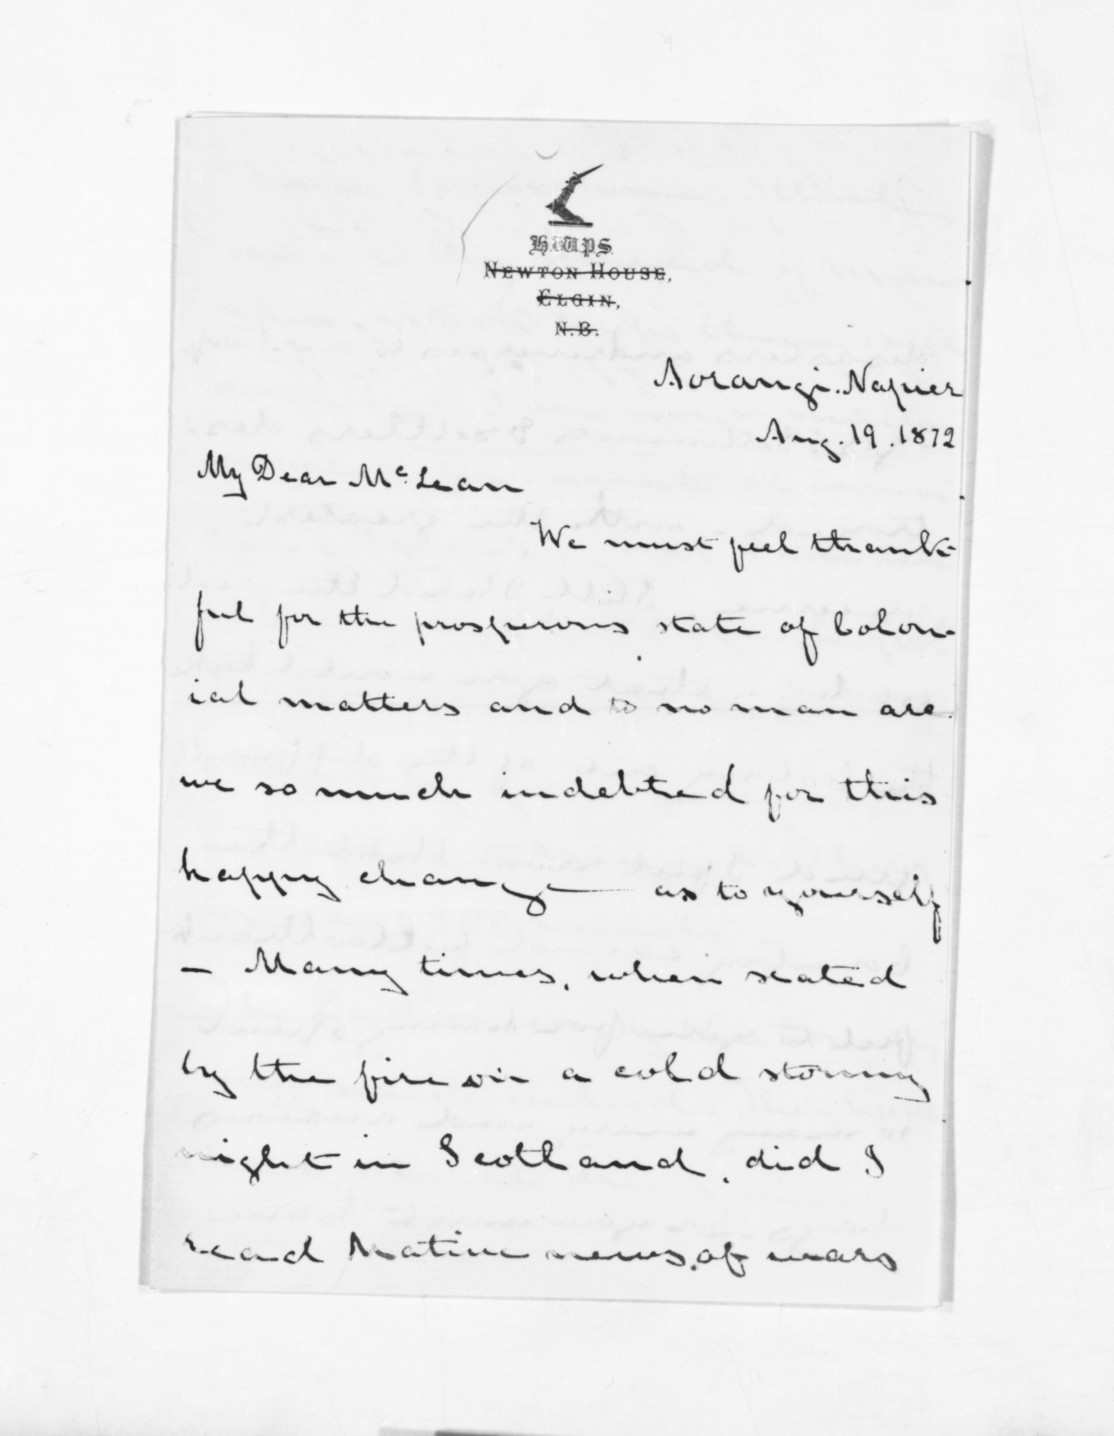 H.W.P.S.
NEWTON HOUSE,
ELGIN,
N.B.
Aorangi. Napier
Aug. 19. 1872
My Dear McLean
We must feel thank-
ful for the prosperous state of Colon-
ial matters and to no man are
we so much indebted for this
happy change as to yourself
– Many times, when seated
by the fire on a cold stormy
night in Scotland, did I
read Native news, of wars